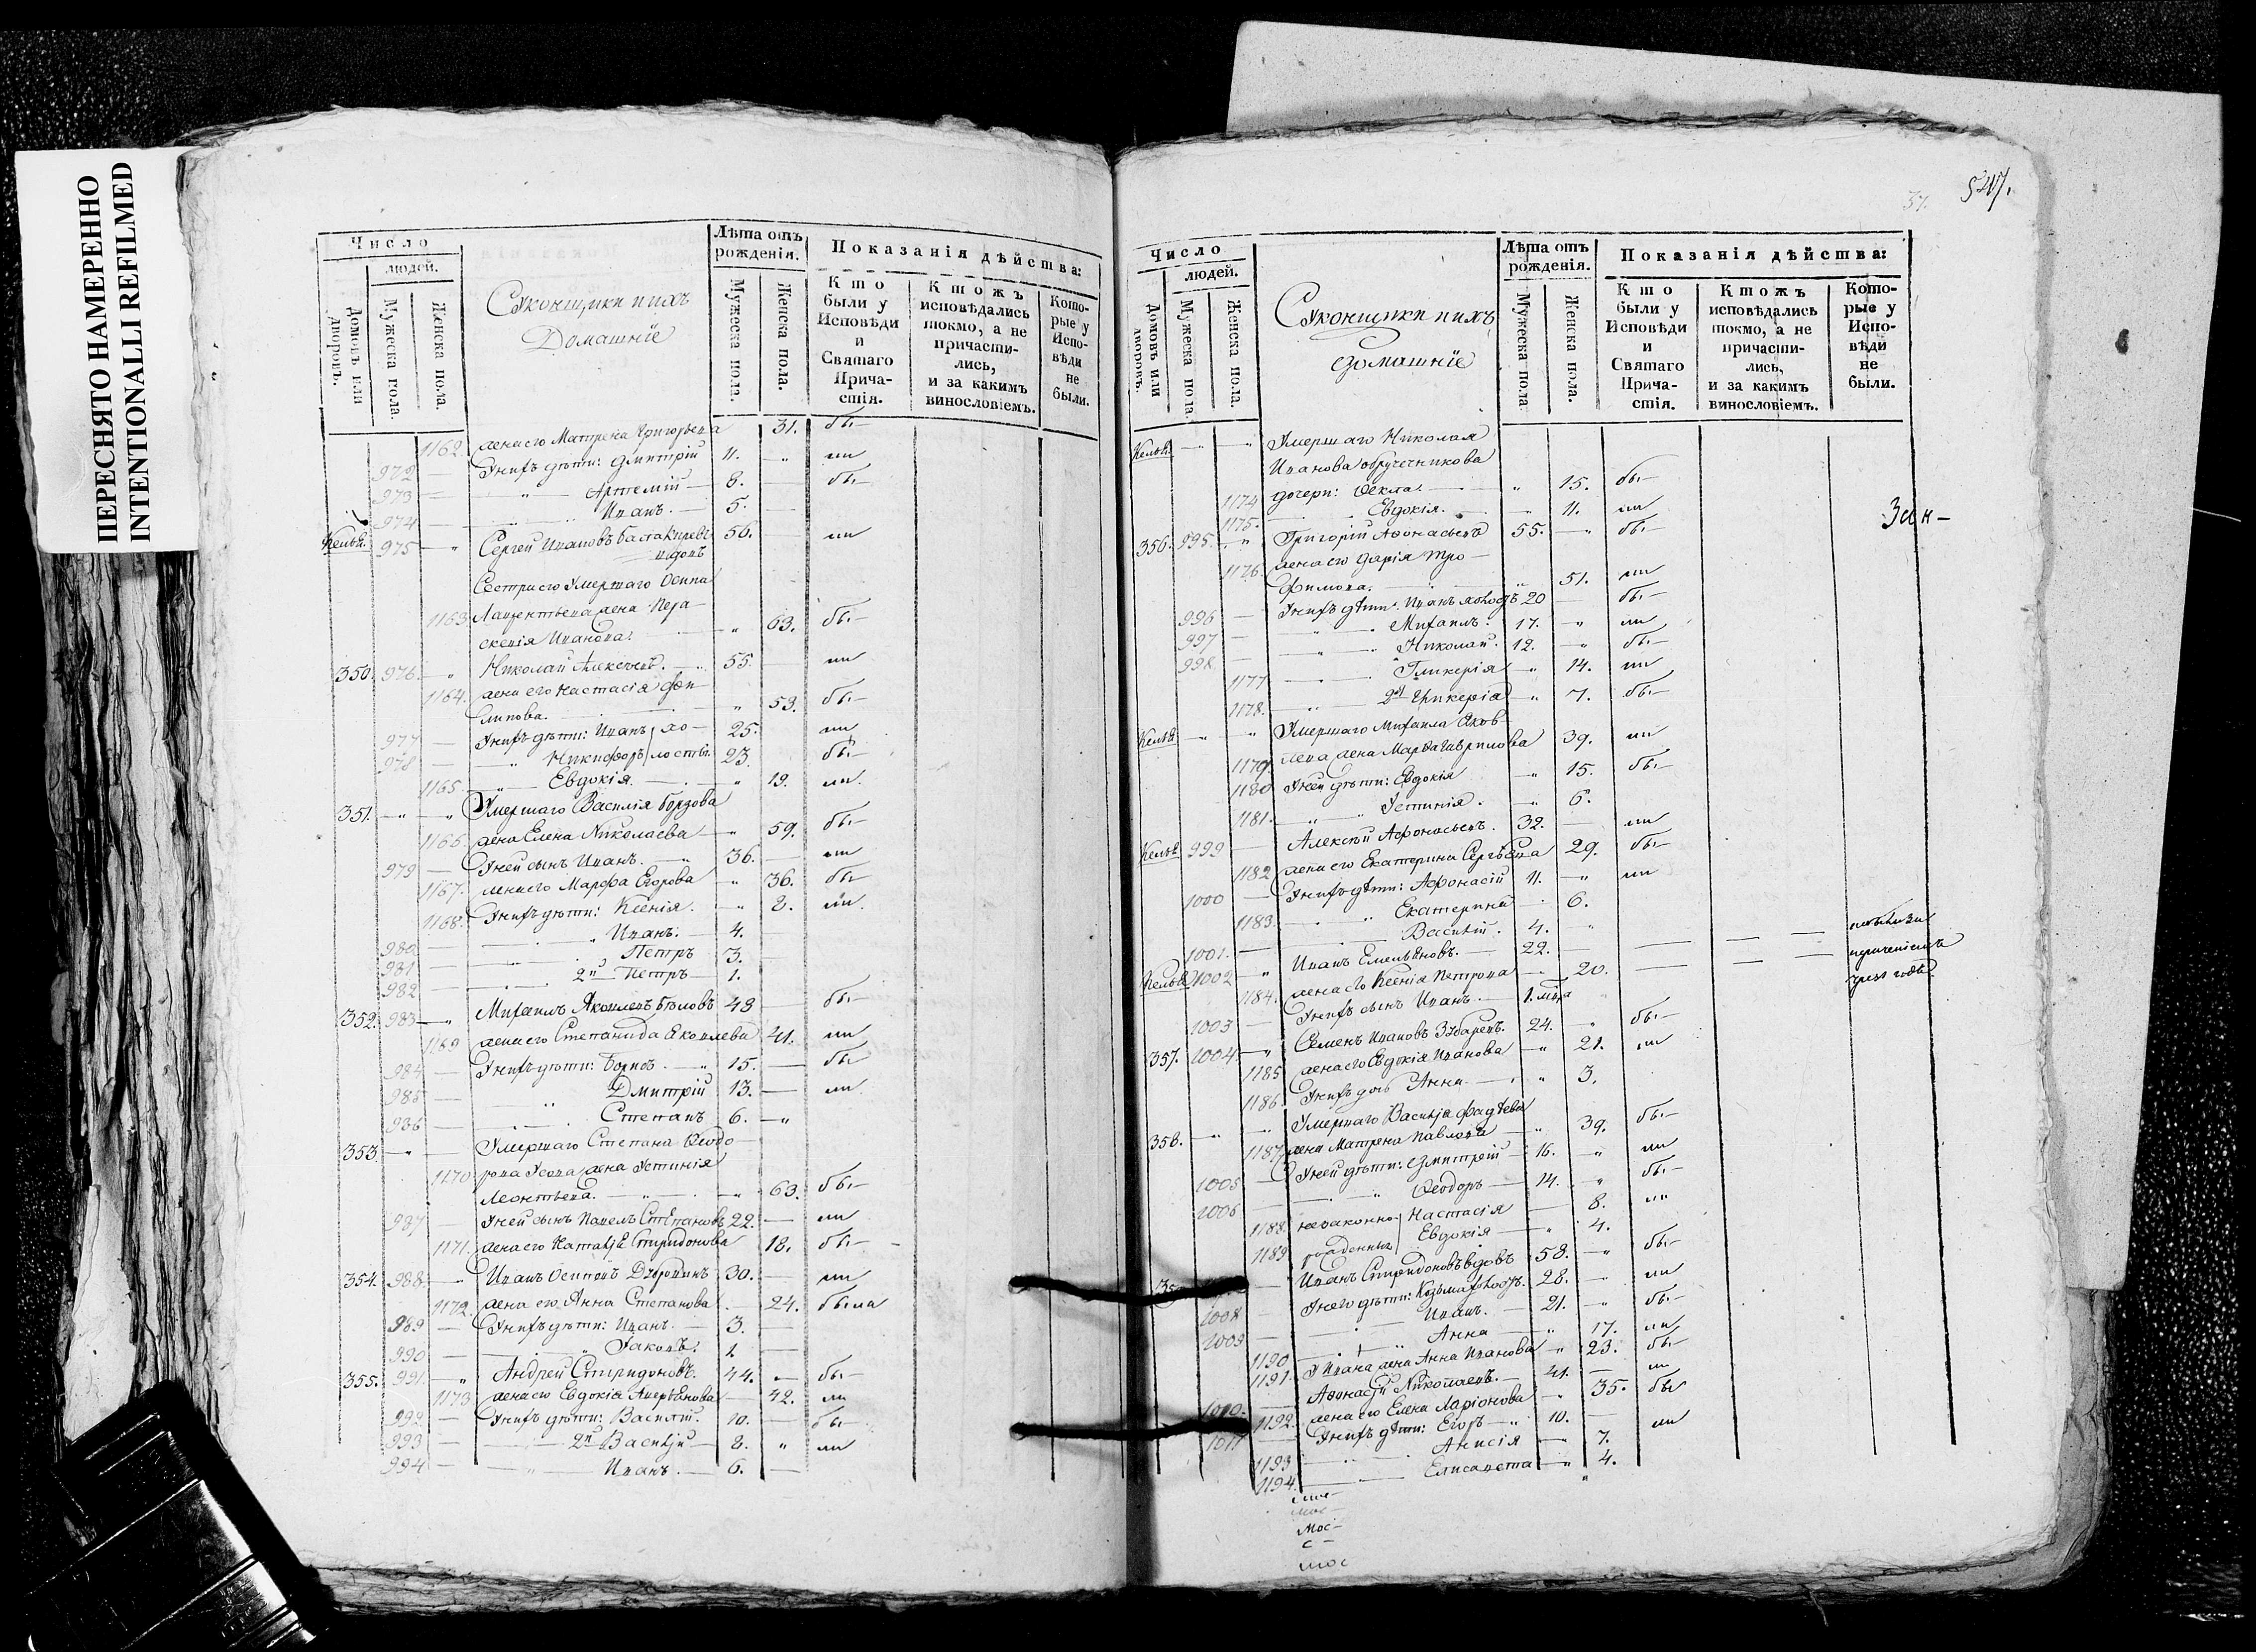 ПЕРЕСНЯТО НАМЕРЕННО
INTENTIONALLI REFILMED
Число
людей.
Домовъ или дворовъ.
Мужеска пола.
Женска пола.
Суконщики и ихъ
Домашнїе
Лѣта отъ рожденїя.
Мужеска пола.
Женска пола.
Показанїя дѣйства:
Кто были у Исповѣди и Святаго Прича-стїя.
Ктожъ исповѣдались токмо, а не причасти-лись, и за какимъ винословїемъ.
Кото-рые у Испо-вѣди не были.
1162. жена его Матрена Григорьева 31. бы—
972 — У нихъ дѣти: Дмитрій 11. „ ли
973 — „ — Артемій — 8. — бы—
974 — „ Иванъ. — 5. —
Келья. 975 — „ Сергей Ивановъ 56. ли
вдовъ
Сестра его Умершаго Осипа
1163 Лаврентьева жена Пера—
скевія Иванова. — „ 63. бы—
350. 976. — „ Николай Алексѣевъ. — 55. — ли
1164. жена его Настасія Фи—
липова. — „ 53. бы—
977 — У нихъ дѣти: Иванъ хо— 25. ли
978 — „ Никифоръ лосты. 23. бы—
1165 — „ Евдокія. — „ 19. ли.
351. — „ — „ Умершаго Василія Борзова
1166. жена Елена Николаева — „ 59. бы—
979 — У ней сынъ Иванъ. — „ 36. — ли
1167. жена его Марфа Егорова „ 36. бы—
1168. У нихъ дѣти: Ксенія. — „ 8. ли.
980 — „ Иванъ. — 4.
981 — „ Петръ 3. —
982 — „ 2й Петръ — 1.
352. 983 — „ Михаилъ Яковлевъ Бѣловъ 43 — бы—
1169 жена его Степанида Яковлева 41. ли
984 — У нихъ дѣти: Борисъ. — „ 15. — бы
985 — „ Дмитрій 13. — ли
986 — Степанъ 6. — „
353. — „ — Умершаго Степана Ѳеодо—
1170 рова жена Устинія
Леонтьева. — „ — „ 63. бы—
987 — У ней сынъ Павелъ Степановъ 22. — ли
1171. жена его Наталія Спиридонова 18. бы—
354. 988. — „ Иванъ Осиповъ 30. — ли
1172. жена его Анна Степанова — 24. была
989 — У нихъ дѣти: Иванъ. — 3. —
990 — „ Іаковъ. 1. —
355. 991. — „ Андрей Спиридоновъ. 44. — бы—
1173 жена его Евдокія 42. ли
992 — У нихъ дѣти: Василій. 10. — бы—
993 — 2й Василій — 8. „ ли
994 — „ Иванъ. — 6. —
547.
37.
Число
людей.
Домовъ или дворовъ.
Мужеска пола.
Женска пола.
Суконщики и ихъ
домашнїе
Лѣта отъ рожденїя.
Мужеска пола
Женска пола.
Показанїя дѣйства:
Кто были у Исповѣди и Святаго Прича-стїя.
Ктожъ исповѣдались токмо, а не причасти-лись, и за какимъ винословїемъ.
Кото-рые у Испо-вѣди не были.
Келья. — „ Умершаго Николая
Иванова
1174 дочери: Ѳекла. — „ 15. бы—
1175. — Евдокія. — „ 11. ли
356. 995. „ Григорій Аѳонасьевъ 55. — „ бы—
1176. жена его Дарія Тро—
фимова. — „ 51. ли
996 — У нихъ дѣти: Иванъ холостъ 20 — бы—
997 — „ Михаилъ. 17. — „ ли
998. — „ Николай. 12. — „ бы—
1177 — Гликерія — „ 14. ли
1178. — „ 2я Гликерія — „ 7. бы—
Келья — „ „ Умершаго Михаила Яков—
1179 лева жена Марѳа Гаврилова 39. ли
1180 У ней дѣти: Евдокія — „ 15. бы—
1181. — „ Устинія. — „ 6.
Келья 999 — Алексѣй Аѳонасьевъ. 32. — ли
1182 жена его Екатерина Сергѣева 29. бы—
1000 — У нихъ дѣти: Аѳонасій 11. — „ ли
1183. — „ Екатерина — 6.
1001. — Василій. 4. „
Келья 1002 — „ Иванъ Емельяновъ. — 22. — — — —
1184. жена его Ксенія Петрова — 20. — — —
1003 — У нихъ сынъ Иванъ. — 1. мѣ:
357. 1004 — „ Семенъ Ивановъ 24. „ бы—
1185 жена его Евдокія Иванова — „ 21. ли
1186. У нихъ дочь Анна. — „ 3.
358. — „ — „ Умершаго Василія Фадѣева
1187. жена Матрена Павлова — „ 39. бы—
1005 — У ней дѣти: Дмитрій — 16. „ ли
1006 — „ Ѳеодоръ — 14. „ бы—
1188. незаконно— Настасія — 8. ли
1189 рожденныя Евдокія — „ 4.
35 — Иванъ Спиридоновъ вдовъ 58. — „ бы—
1008 — У него дѣти: Козьма холостъ. 28. — „ ли
1009 — Иванъ. — 21. — „ бы—
1190 — „ Анна — „ 17. ли
1191. У Ивана жена Анна Иванова „ 23. бы—
1010. — Аѳонасій Николаевъ. — 41. — ли
1192. жена его Елена Ларіонова — „ 35. бы
1011 — У нихъ дѣти: Егоръ — „ 10. — ли
1193 — „ Анисія — „ 7.
1194. — Елисавета — „ 4.
мос—